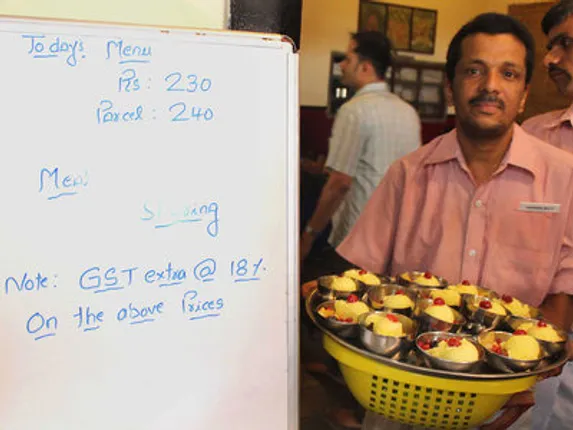 Today's Menu
Rs: 230
Parcel: 240
Note: GST extra @ 18%.
On the above Prices